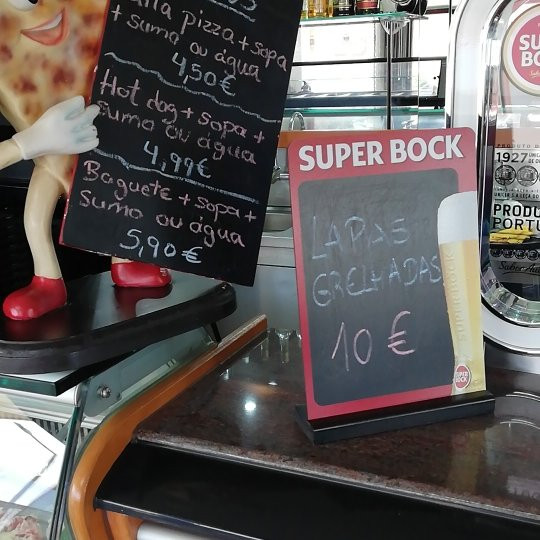 pizza + sopa
+ sumo ou água
4,50€
Hot dog + sopa +
sumo ou água
4,99€
Baguete + sopa +
Sumo ou água
5,90€
SUPER BOCK
LAPAS
GRELHADAS
10 €
SUPER BOCK
SUPER
BOC
1927
PRODU
PORTU